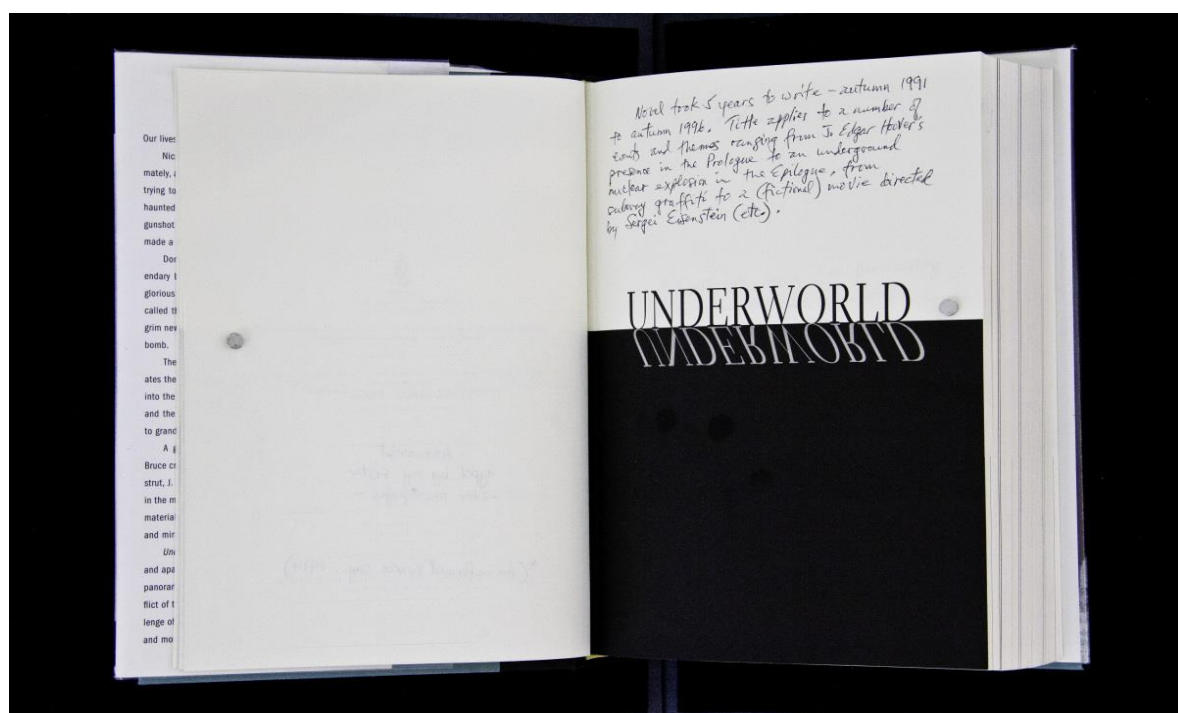 Our lives
Nic
mately, a
trying to
haunted
gunshot
made a
Don
endary b
glorious
called th
grim new
bomb.
The
ates the
into the
and the
to grand
A g
Bruce cr
strut, J.
in the m
material
and mir
Und
and apa
panorar
flict of t
lenge of
and mo
Novel took 5 years to write – autumn 1991
to autumn 1996. Title applies to a number of
events and themes ranging from J. Edgar Hoover's
presence in the Prologue to an underground
nuclear explosion in the Epilogue, from
subway graffiti to a (fictional) movie directed
by Sergei Eisenstein (etc.).
UNDERWORLD
UNDERWORLD